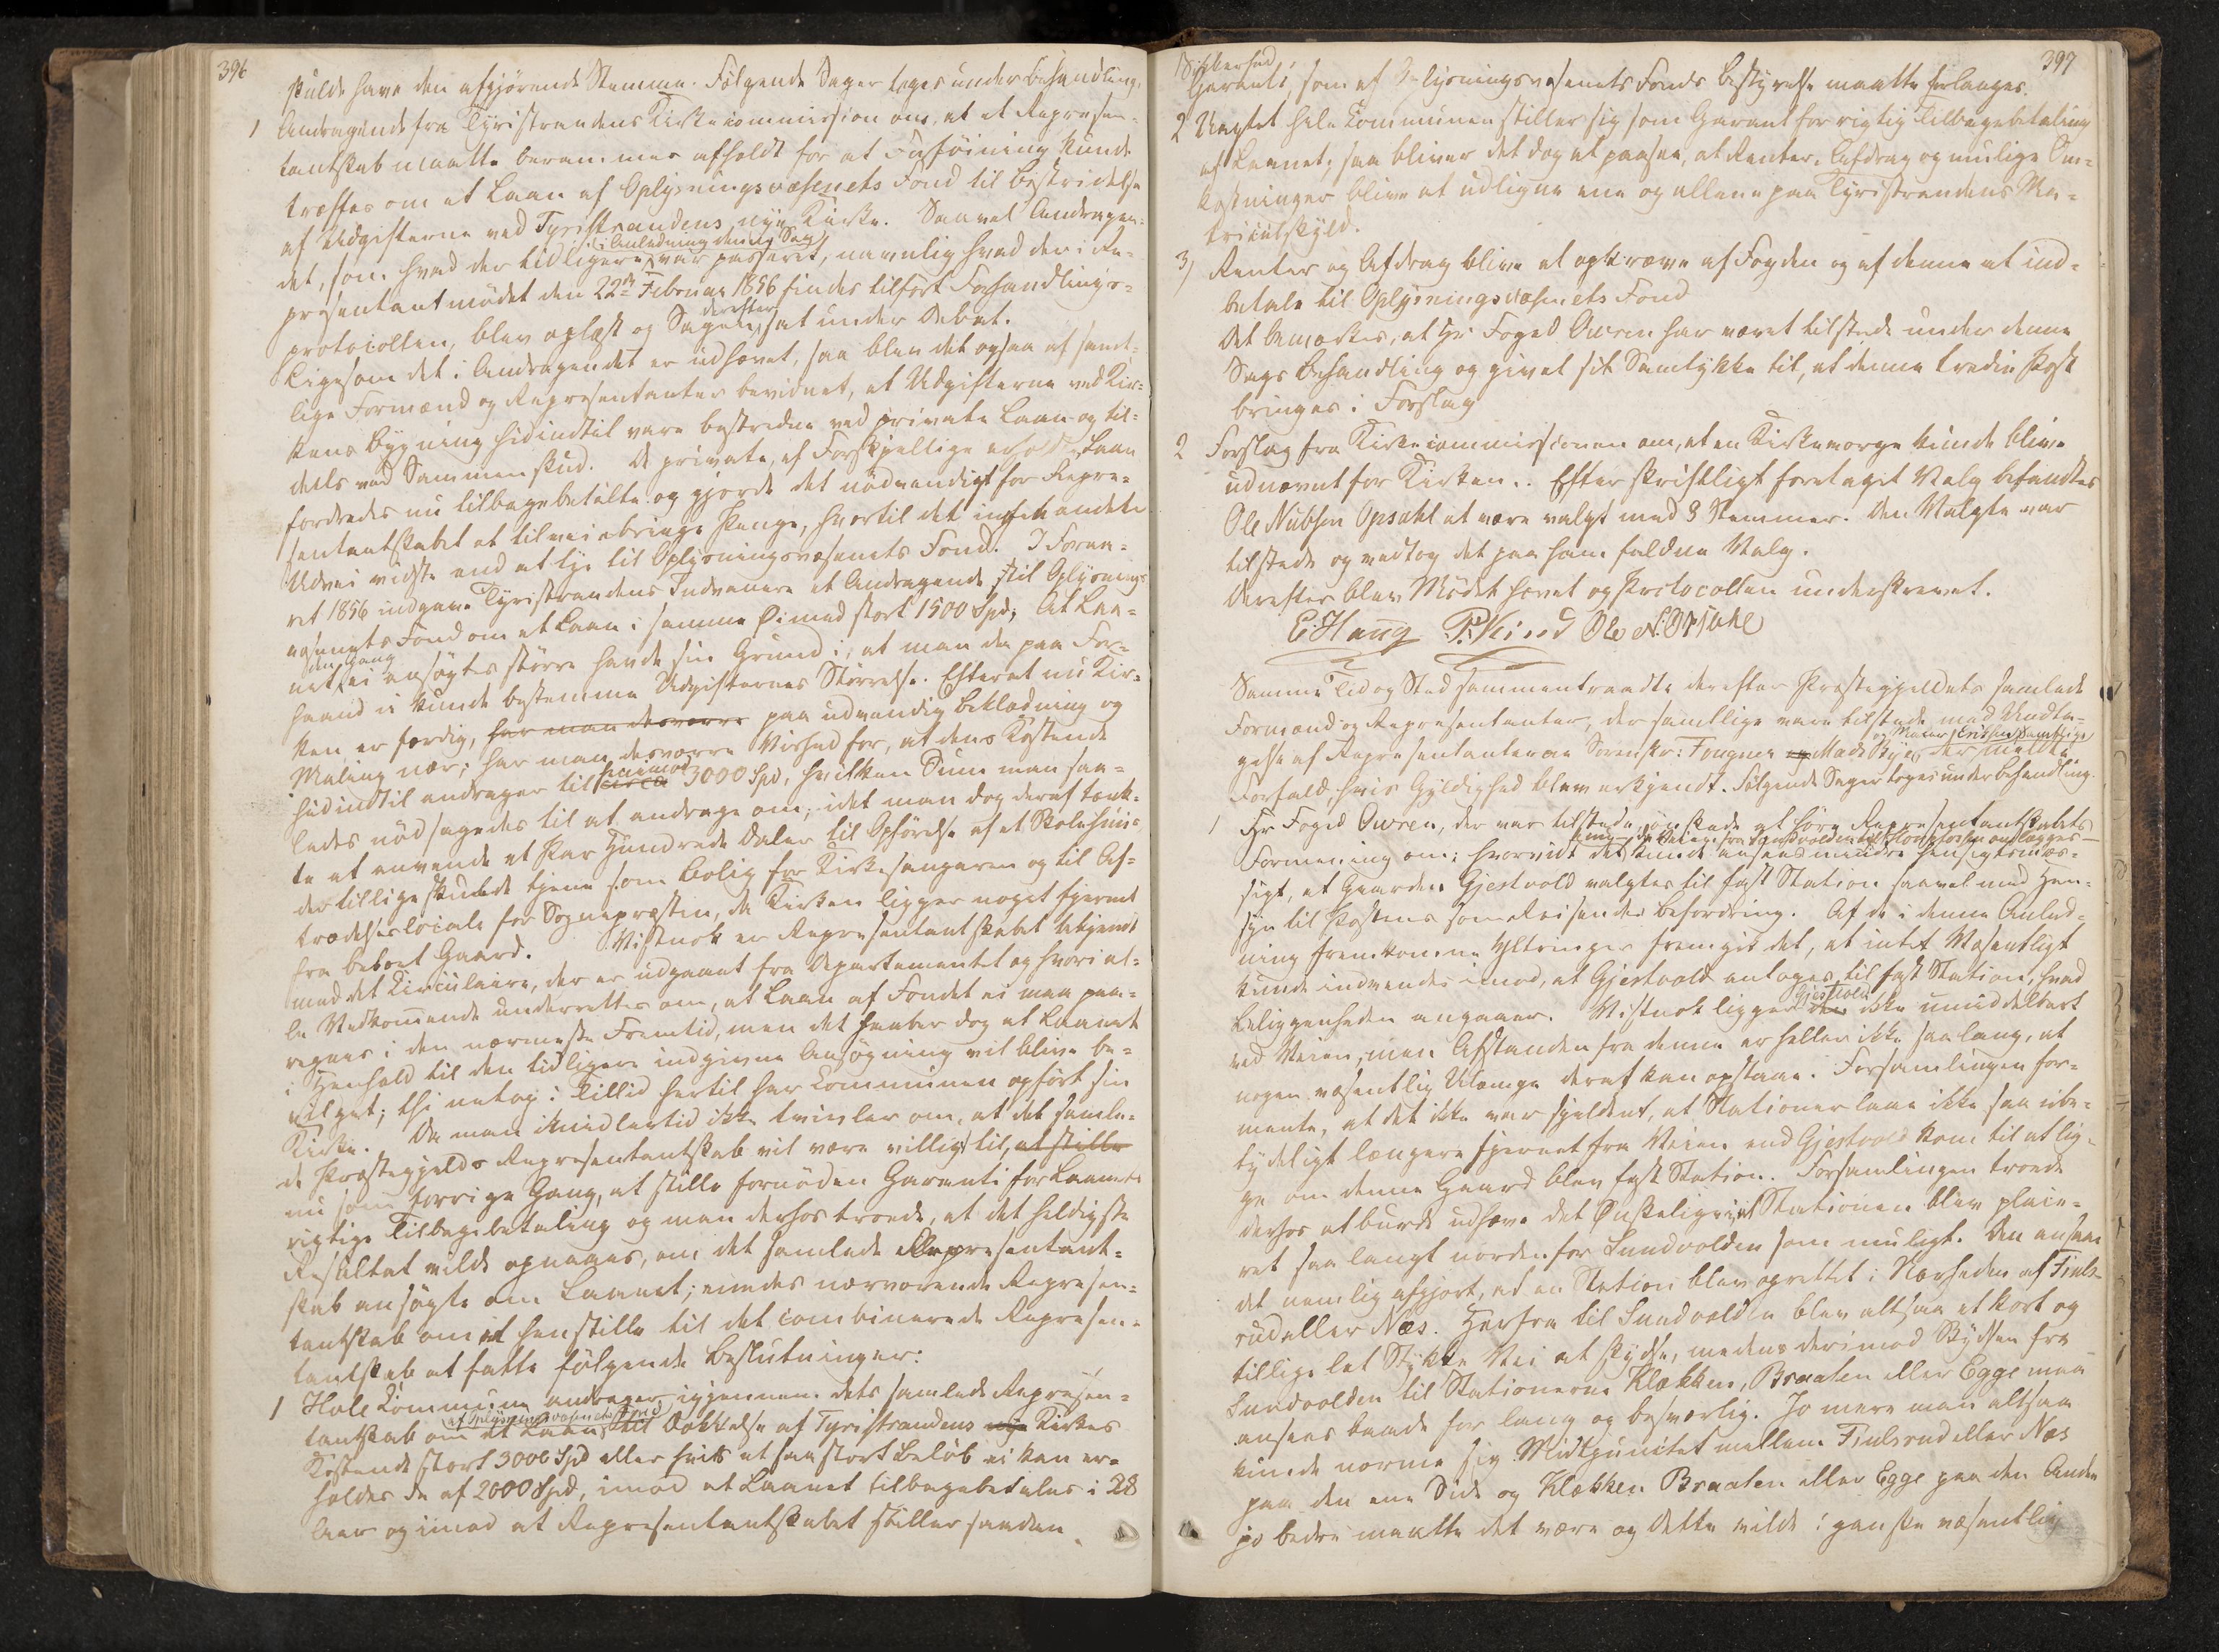 396
skulde have den afgjørende Stemme. Følgende Sager toges under Behandling.
1 Andragende fra Tyristrandens Kirkecommission om, at et Represen-
tantskab maatte berammes afholdt for at Føiføining kunde
træffes om et Laan af Oplysningsvæsenets Fond til Bestridelse
af Udgifterne ved Tyristrandens nye Kirke. Saavel Andragen-
det, som hvad der tidligere i Anledning denne Sag var passeret, navnlig hvad der i Re-
presentantmødet den 22de Februar 1856 findes tilført Forhandlings-
protocollen, blev oplæst og Sagen derefter sat under Debat.
Ligesom det i Andragendet er udhævet, saa blev det ogsaa af samt-
lige Formænd og Representanter bevidnet, at Udgifterne ved Kir-
kens Bygning hidindtil vare bestredne ved private Laan og til-
deels ved Sammenskud. De private, af Forskjellige erholdte Laan
fordredes nu tilbagebetalte og gjorde det nødvendigt for Repre-
sentantskabet at tilveiebringe Penge, hvortil det ingen anden
Udvei vidste end at tye til Oplysningsvæsenets Fond. I Foraa-
ret 1856 indgave Tyristrandens Indvaanere et Andragende til Oplysnings-
væsenets Fond om et Laan i samme Øimed stort 1500 Spd; At Laa-
net den Gang ei ansøgtes større havde sin Grund i, at man da paa For-
haand ei kunde bestemme Udgifternes Størrelse. Efterat nu Kir-
ken er færdig, har man desværre paa udvendig Beklædning og
Maling nær; har man desværre Vished for, at dens Kostende
hidindtil andrager til circa henimod 3000 Spd, hvilken Sum man saa-
ledes nødsagedes til at andrage om, idet man dog deraf tænk-
te at anvende et Par Hundrede Daler til Opførelse af et Skolehuus
der tillige skulde tjene som Bolig for Kirkesangeren og til Af-
trædelseslocale for Sognepræsten, da Kirken ligger noget fjernet
fra beboet Gaard. Vistnok er Representantskabet bekjendt
med det Circulaire, der er udgaaet fra Departementet og hvori al-
le Vedkommende underrettes om, at Laan af Fondet ei maa paa-
regnes i den nærmeste Fremtid, men det haaber dog at Laanet
i Henhold til den tidligere indgivne Ansøgning vil blive be-
vilget; thi netop i Tillid hertil har Communen opført sin
Kirke. Da man imidlertid ikke tvivler om, at det samle-
de Præstegjelds Representantskab vil være villigt til, at stille
nu som forrige Gang, at stille fornøden Garanti for Laanets
rigtige Tilbagebetaling og man derhos troede, at det heldigste
Resultat vilde opnaaes, om det samlede Representant-
skab ansøgte om Laanet; eenedes nærværende Represen-
tantskab om at henstille til det combinerede Represen-
tantskab at fatte følgende Beslutninger:
1 Hole Commune andrager igjennem dets samlede Represen-
tantskab om et Laan af Oplysningsvæsenets Fond til Dækkelse af Tyristrandens nye Kirkes
Kostende stort 3000 Spd eller hvis et saa stort Beløb ei kan er-
holdes da af 2000 Spd, imod at Laanet tilbagebetales i 28
Aar og imod at Representantskabet stiller saadan
397
Sikkerhed,
Garanti, som af Oplysningsvæsenets Fonds Bestyrelse maatte forlanges.
2 Uagtet hele Communen stiller sig som Garant for rigtig Tilbagebetaling
af Laanet, saa bliver det dog at paasee, at Renter, Afdrag og mulige Om-
kostninger blive at udligne ene og allene paa Tyristrandens Ma-
triculskyld.
3) Renter og Afdrag blive at opkræve af Fogden og af denne at ind-
betale til Oplysningsvæsenets Fond
Det bemærkes, at Hr Foged Owren har været tilstede under denne
Sags Behandling og givet sit Samtykke til, at denne tredie Post
bringes i Forslag
2 Forslag fra Kirkecommissionen om, at en Kirkeværge kunde blive
udnævnt for Kirken. Efter skriftligt foretaget Valg befandtes
Ole Nubsen Opsahl at være valgt med 8 Stemmer. Den Valgte var
tilstede og vedtog det paa ham faldne Valg.
Derefter blev Mødet hævet og Protocollen underskrevet.
E. Haug P. Wiind Ole N. Opsahl
Samme Tid og Sted sammentraadte derefter Præstegjeldets samlede
Formænd og Representanter, der samtlige vare tilstede med Undta-
gelse af Representanterne Sorenskr: Fougner og Mads Bye og Maier Eriksen Samtlige der meldte
Forfald, hvis Gyldighed blev erkjendt. Følgende Sager toges under Behandling.
1 Hr Foged Owren, der var tilstede, ønskede at høre Representantskabets
Formening om: hvorvidt det kunde ansees mindre hensigtsmæs-
sigt, at Gaarden Gjestvold valgtes til fast Station saavel med Hen-
syn til Postens som Reisendes Befordring. Af de i denne Anled-
ning fremkomne Yttringer fremgik det, at intet Væsentligt
kunde indvendes imod, at Gjestvold antages til fast Station, hvad
Beliggenheden angaaer. Vistnok ligger den Gjestvold ikke umiddelbart
ved Veien, men Afstanden fra denne er heller ikke saa lang, at
nogen væsentlig Ulempe deraf kan opstaae. Forsamlingen for-
mente, at det ikke var sjeldent, at Stationer laae ikke saa ube-
tydeligt længere fjernet fra Veien end Gjestvold kom til at lig-
ge om denne Gaard blev fast Station. Forsamlingen troede
derhos at burde udhæve det Ønskelige i, at Stationen blev place-
ret saa langt norden for Sundvolden som muligt. Den ansaae
det nemlig afgjort, at en Station blev oprettet i Nærheden af Fiuls-
rud eller Næs. Herfra til Sundvolden blev altsaa et kort og
tillige let Stykke Vei at skydse, medens derimod Skydsen fra
Sundvolden til Stationerne Klækken, Braaten eller Egge maa
ansees baade for lang og besværlig. Jo mere man altsaa
kunde nærme sig Midtpunctet mellem Fiulsrud eller Næs
paa den ene Side og Klækken Braaten eller Egge paa den Anden
jo bedre maatte det være og dette vilde i ganske væsentlig